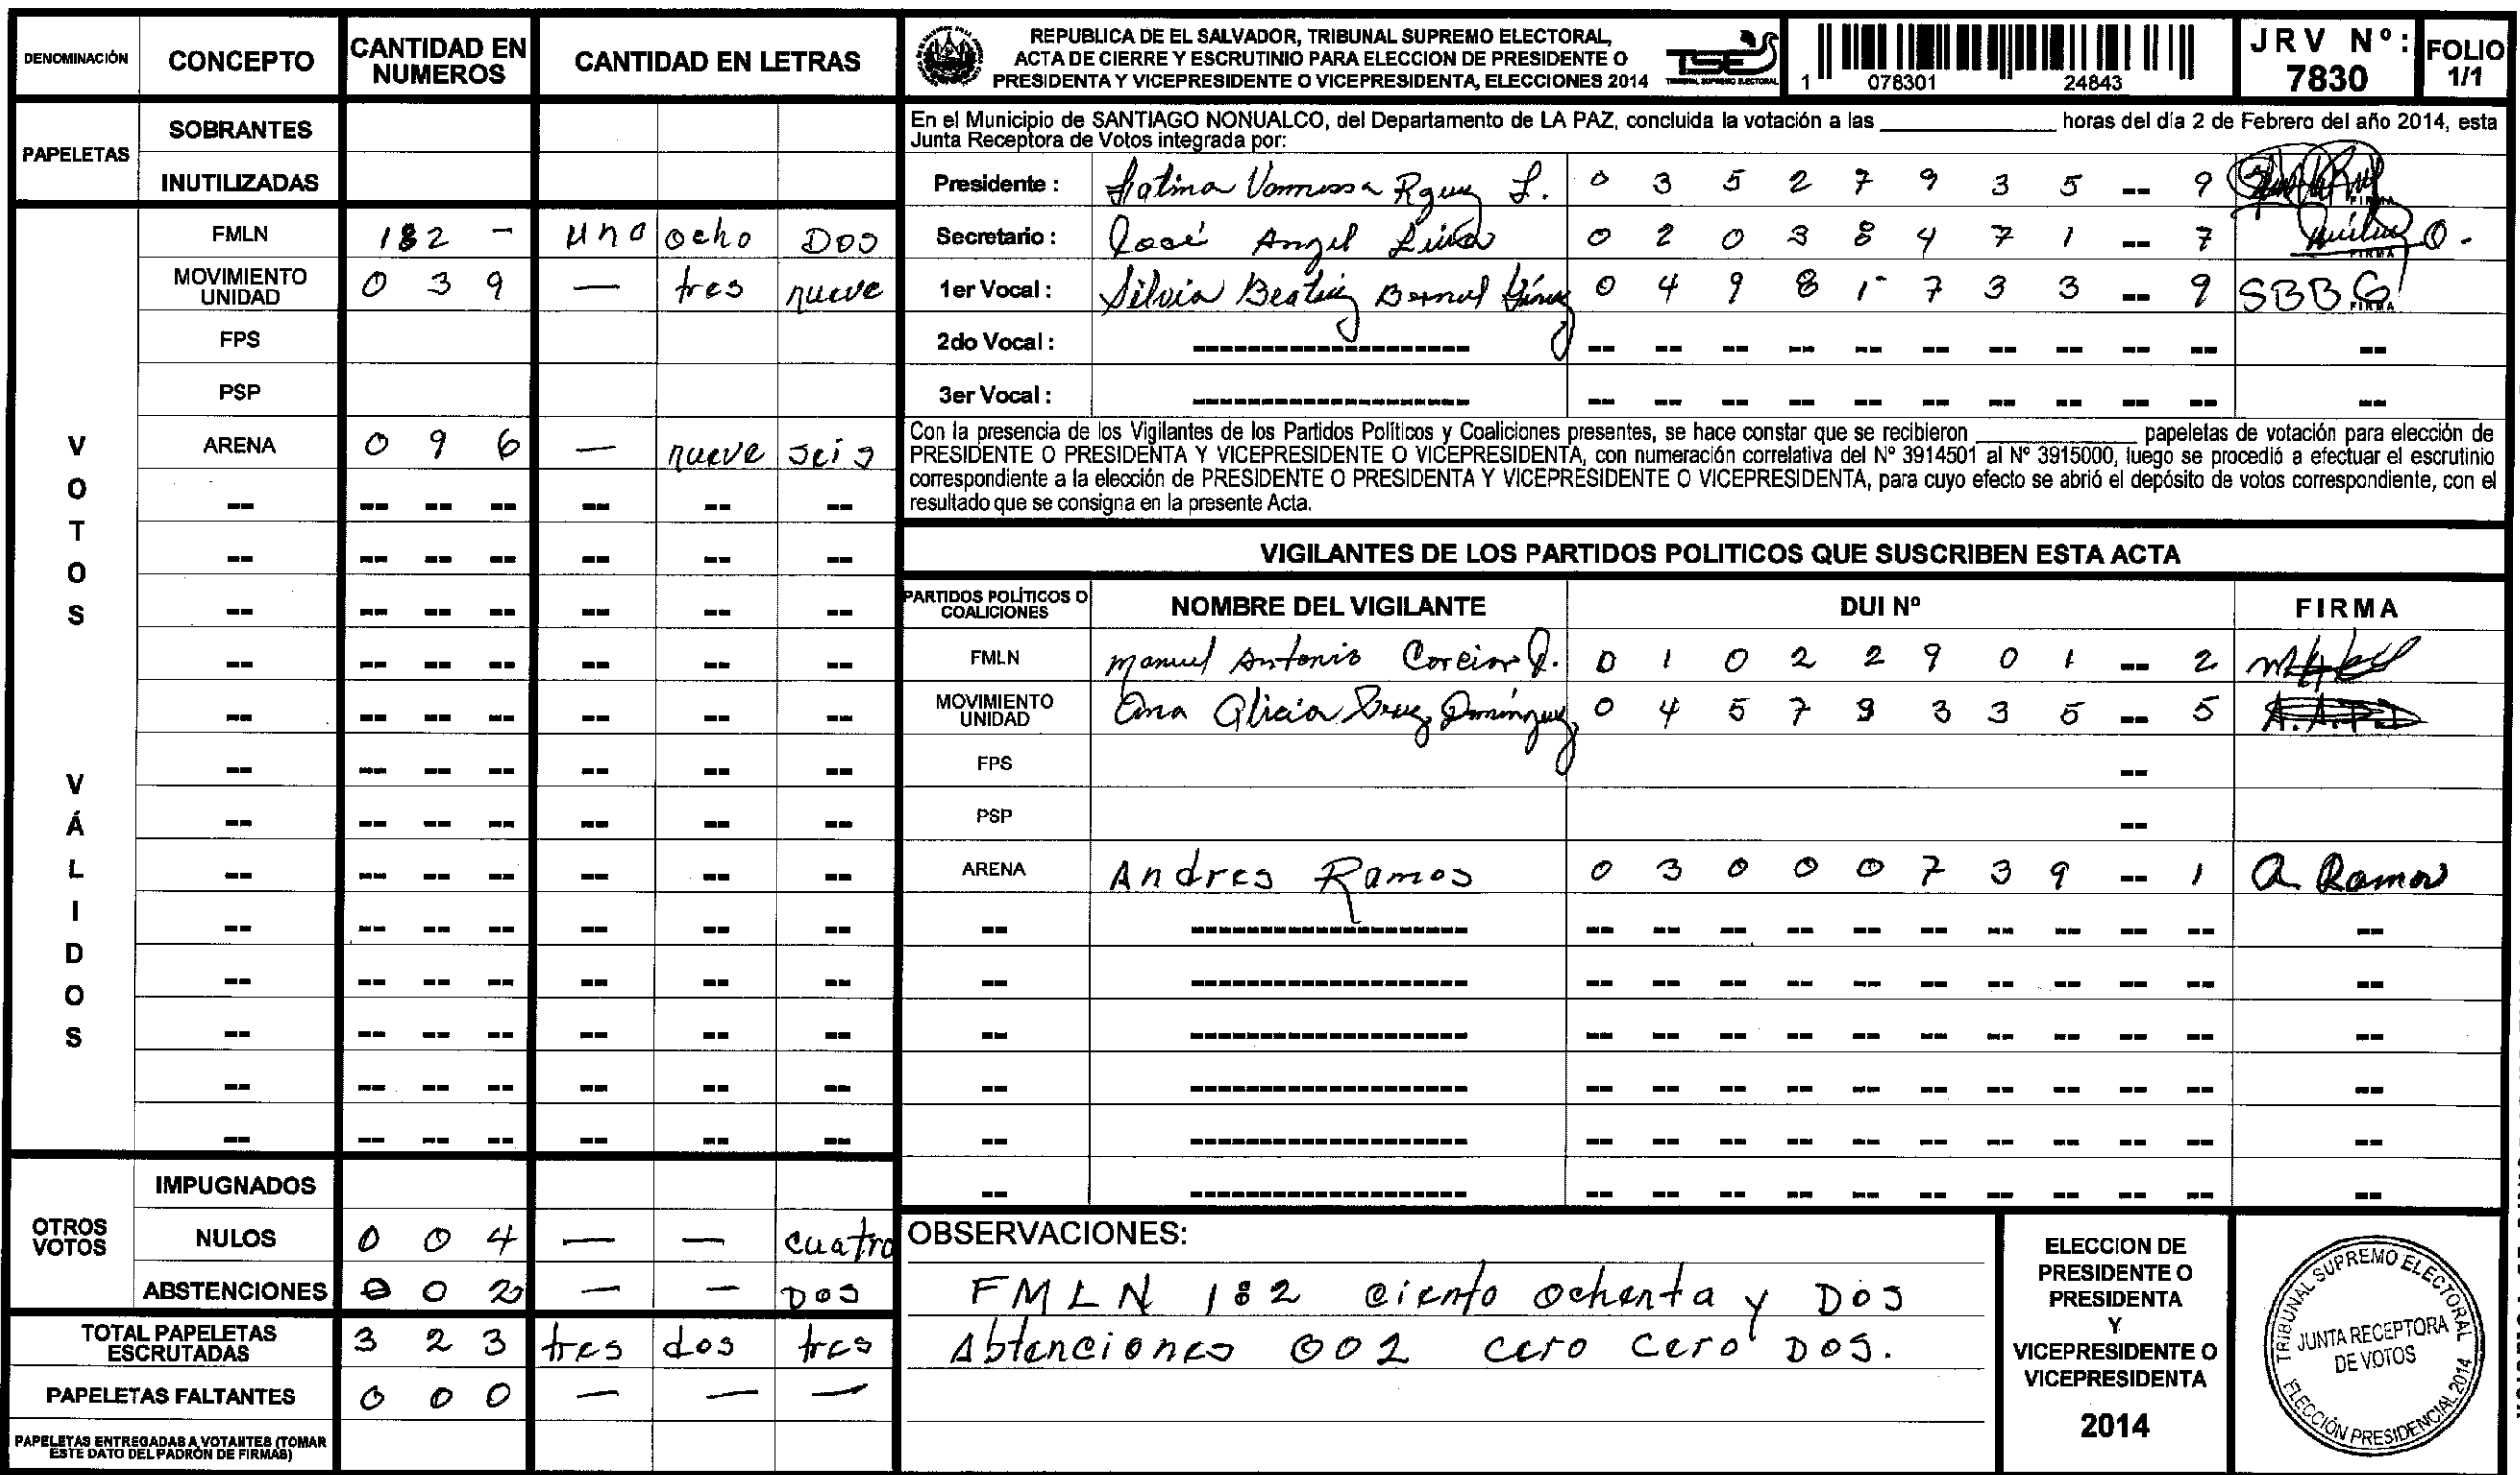 DENOMINACIÓN CONCEPTO CANTIDAD EN NUMEROS CANTIDAD EN LETRAS
PAPELETAS
SOBRANTES
INUTILIZADAS
VOTOS VÁLIDOS
FMLN 182 - uno ocho Dos
MOVIMIENTO UNIDAD 0 3 9 — tres nueve
FPS
PSP
ARENA 0 9 6 — nueve seis
-- -- -- -- -- -- --
-- -- -- -- -- -- --
-- -- -- -- -- -- --
-- -- -- -- -- -- --
-- -- -- -- -- -- --
-- -- -- -- -- -- --
-- -- -- -- -- -- --
-- -- -- -- -- -- --
-- -- -- -- -- -- --
-- -- -- -- -- -- --
-- -- -- -- -- -- --
-- -- -- -- -- -- --
-- -- -- -- -- -- --
OTROS VOTOS
IMPUGNADOS
NULOS 0 0 4 — — cuatro
ABSTENCIONES 0 0 2 — — DOS
TOTAL PAPELETAS ESCRUTADAS 3 2 3 tres dos tres
PAPELETAS FALTANTES 0 0 0 — — —
PAPELETAS ENTREGADAS A VOTANTES (TOMAR
ESTE DATO DEL PADRÓN DE FIRMAS)
REPUBLICA DE EL SALVADOR, TRIBUNAL SUPREMO ELECTORAL,
ACTA DE CIERRE Y ESCRUTINIO PARA ELECCION DE PRESIDENTE O
PRESIDENTA Y VICEPRESIDENTE O VICEPRESIDENTA, ELECCIONES 2014
TSE
TRIBUNAL SUPREMO ELECTORAL
1 078301 24843
JRV Nº:
7830
FOLIO
1/1
En el Municipio de SANTIAGO NONUALCO, del Departamento de LA PAZ, concluida la votación a las ____________ horas del día 2 de Febrero del año 2014, esta
Junta Receptora de Votos integrada por:
Presidente : Vannessa L. 0 3 5 2 7 9 3 5 -- 9 FIRMA
Secretario : José Angel 0 2 0 3 8 4 7 1 -- 7 FIRMA
1er Vocal : Silvia Beatriz 0 4 9 8 1 7 3 3 -- 9 SBBG FIRMA
2do Vocal : -------------------- -- -- -- -- -- -- -- -- -- -- --
3er Vocal : -------------------- -- -- -- -- -- -- -- -- -- -- --
Con la presencia de los Vigilantes de los Partidos Políticos y Coaliciones presentes, se hace constar que se recibieron ____________ papeletas de votación para elección de
PRESIDENTE O PRESIDENTA Y VICEPRESIDENTE O VICEPRESIDENTA, con numeración correlativa del Nº 3914501 al Nº 3915000, luego se procedió a efectuar el escrutinio
correspondiente a la elección de PRESIDENTE O PRESIDENTA Y VICEPRESIDENTE O VICEPRESIDENTA, para cuyo efecto se abrió el depósito de votos correspondiente, con el
resultado que se consigna en la presente Acta.
VIGILANTES DE LOS PARTIDOS POLITICOS QUE SUSCRIBEN ESTA ACTA
PARTIDOS POLÍTICOS O COALICIONES NOMBRE DEL VIGILANTE DUI Nº FIRMA
FMLN Manuel Antonio 0 1 0 2 2 9 0 1 -- 2
MOVIMIENTO UNIDAD Ana Alicia Domínguez 0 4 5 7 9 3 3 5 -- 5
FPS --
PSP --
ARENA Andres Ramos 0 3 0 0 0 7 3 9 -- 1 A Ramos
-- -------------------- -- -- -- -- -- -- -- -- -- -- --
-- -------------------- -- -- -- -- -- -- -- -- -- -- --
-- -------------------- -- -- -- -- -- -- -- -- -- -- --
-- -------------------- -- -- -- -- -- -- -- -- -- -- --
-- -------------------- -- -- -- -- -- -- -- -- -- -- --
-- -------------------- -- -- -- -- -- -- -- -- -- -- --
OBSERVACIONES:
FMLN 182 ciento ochenta y Dos
Abtenciones 002 cero cero Dos.
ELECCION DE
PRESIDENTE O
PRESIDENTA
Y
VICEPRESIDENTE O
VICEPRESIDENTA
2014
TRIBUNAL SUPREMO ELECTORAL
JUNTA RECEPTORA
DE VOTOS
ELECCIÓN PRESIDENCIAL 2014